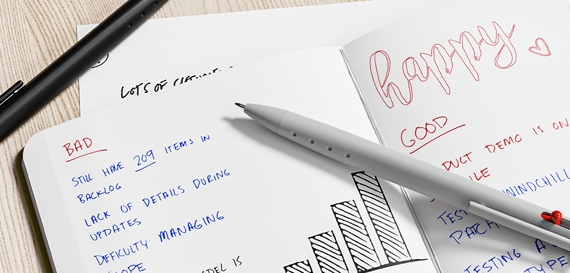 LOTS OF
BAD
STILL HAVE 209 ITEMS IN
BACKLOG
LACK OF DETAILS DURING
UPDATES
DIFFICULTY MANAGING
MODEL IS
happy
GOOD
DUCT DEMO IS ON
WINDCHILL
TESTING A